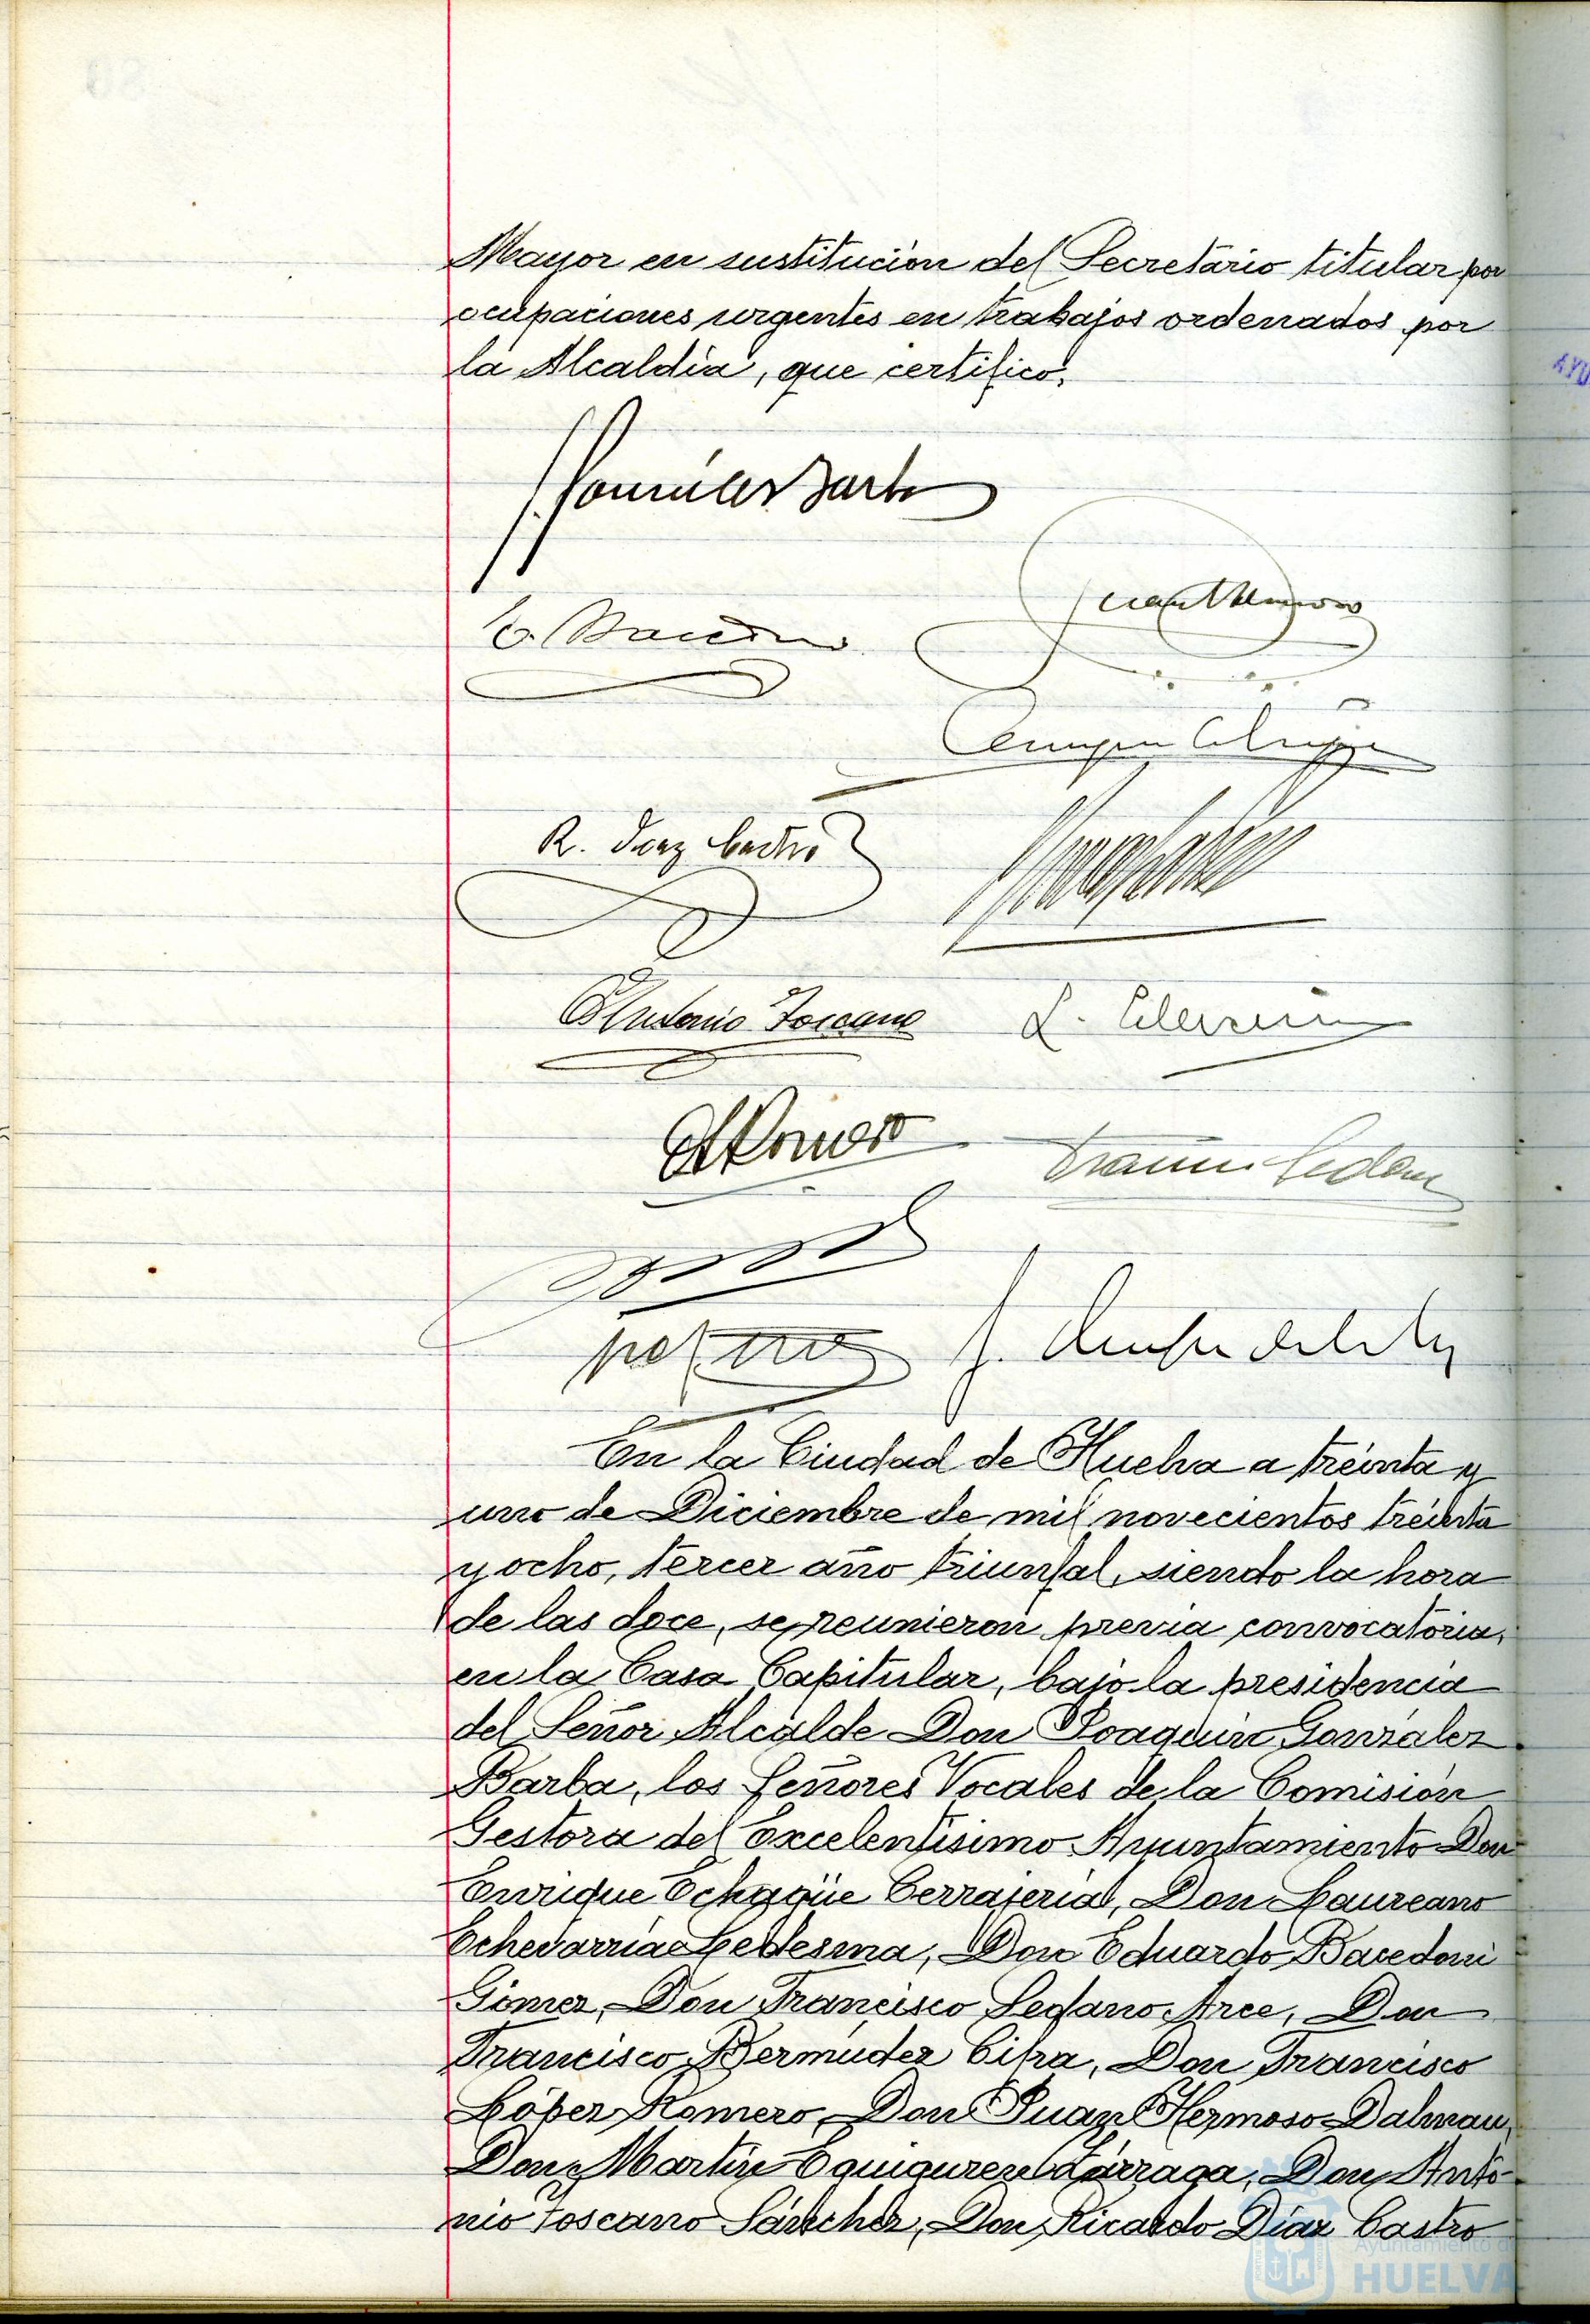 Mayor en sustitución del Secretario titular por
ocupaciones urgentes en trabajos ordenados por
la Alcaldía, que certifico.
AYU
R. Diaz Castro
Antonio Toscano
En la Ciudad de Huelva a treinta y
uno de Diciembre de mil novecientos treinta
y ocho, tercer año triunfal, siendo la hora
de las doce, se reunieron previa convocatoria,
en la Casa Capitular, bajo la presidencia
del Señor Alcalde Don Joaquin Gonzalez
Barba, los Señores Vocales de la Comisión
Gestora del Excelentísimo Ayuntamiento Don
Enrique Echagüe Cerrajeria, Don Laureano
Echevarria Ledesma, Don Eduardo Bacedoni
Gómez, Don Francisco Sedano Arce, Don
Francisco Bermudez Cifra, Don Francisco
López Romero, Don Juan Hermoso Dalmau,
Don Martin Eguiguren Lárraga, Don Anto-
nio Toscano Sánchez, Don Ricardo Díaz Castro
Ayuntamiento de
HUELVA